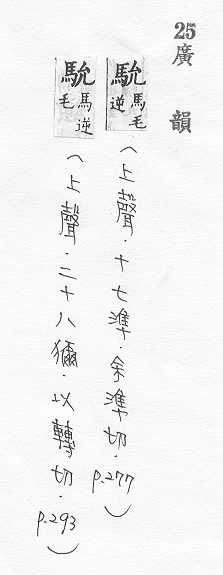 25 廣韻
馻 馬毛逆 (上聲.十七準.余準切.p.277)
馻 馬逆毛 (上聲.二十八獮.以轉切.p.293)